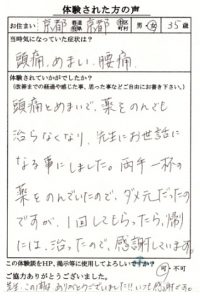 体験された方の声
お住まい 京都 都道府県 京都 市区町村 男・女 35歳
当時気になっていた症状は?
頭痛、めまい、腰痛
体験されていかがでしたか?
(改善までの経過や感じた事、思った事などご自由にお書き下さい。)
頭痛とめまいで、薬をのんでも
治らなくなり、先生にお世話に
なる事にしました。両手一杯の
薬をのんでいたので、ダメ元だったの
ですが、1回してもらったら、帰り
には、治ったので、感謝しています。
この体験談をHP、掲示等に使用してよろしいですか?
ご協力ありがとうございました。 可・不可
先生、この度はありがとうございました!!いつも感謝